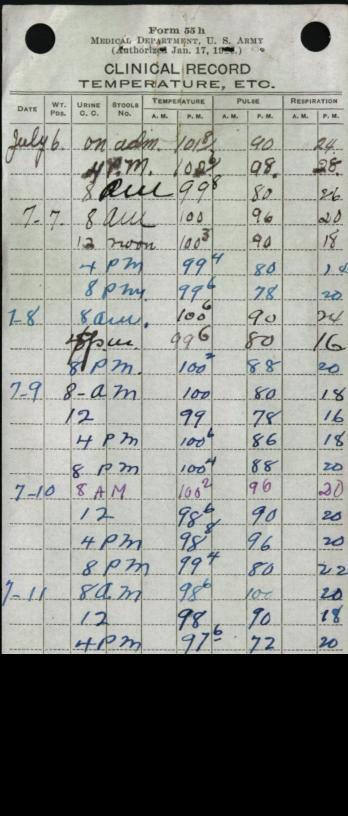 Form 55 h
MEDICAL DEPARTMENT, U. S. ARMY
(Authorized Jan. 17,
CLINICAL RECORD
TEMPERATURE, ETC.
DATE WT. Pos. URINE C. C. STOOLS No. TEMPERATURE A. M. P. M. PULSE A. M. P. M. RESPIRATION A. M. P. M.
July 6. on adm. 101⁸ 90 24
4 P.M. 100² 98. 28.
8 am 99⁸ 80 26
7-7. 8 am 100 96 20
12 noon 100³ 90 18
4 PM 99⁴ 80
8 PM. 99⁶ 78 20
7-8 8 am. 100⁶ 90 24
4 pm. 99⁶ 80 16
8 PM. 100² 88 20
7-9 8-AM 100 80 18
12 99 78 16
4 PM 100⁶ 86 18
8 PM 100⁴ 88 20
7-10 8 AM 100² 96 20
12 98⁶ 90 20
4 PM 98⁸ 96 20
8 PM 99⁴ 80 22
7-11 8 AM 98⁶ 100 20
12 98 90 18
4 PM 97⁶ 72 20